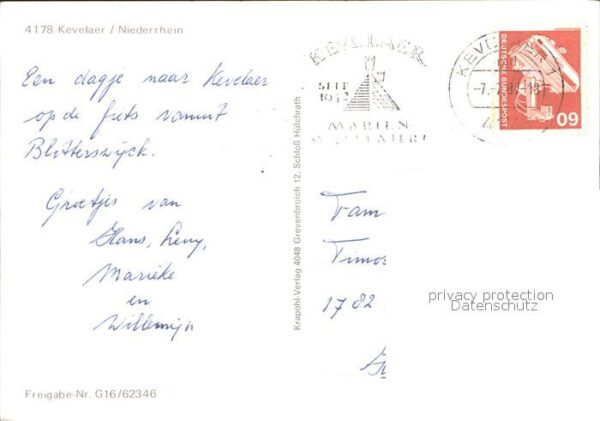 4178 Kevelaer / Niederrhein
Een dagje naar Kevelaer
op de fiets vanuit
Blitterswijck.
Groetjes van
Hans, Leny,
Marieke
en
Willemijn
Freigabe-Nr. G16/62346
Krapohl-Verlag 4048 Grevenbroich 12, Schloß Hülchrath
KEVELAER
SEIT
MARIEN-
WALLFAHRT
KEVELAER 1
-7.-7.84-18
DEUTSCHE BUNDESPOST
60
Fam
Timo
1782
privacy protection
Datenschutz